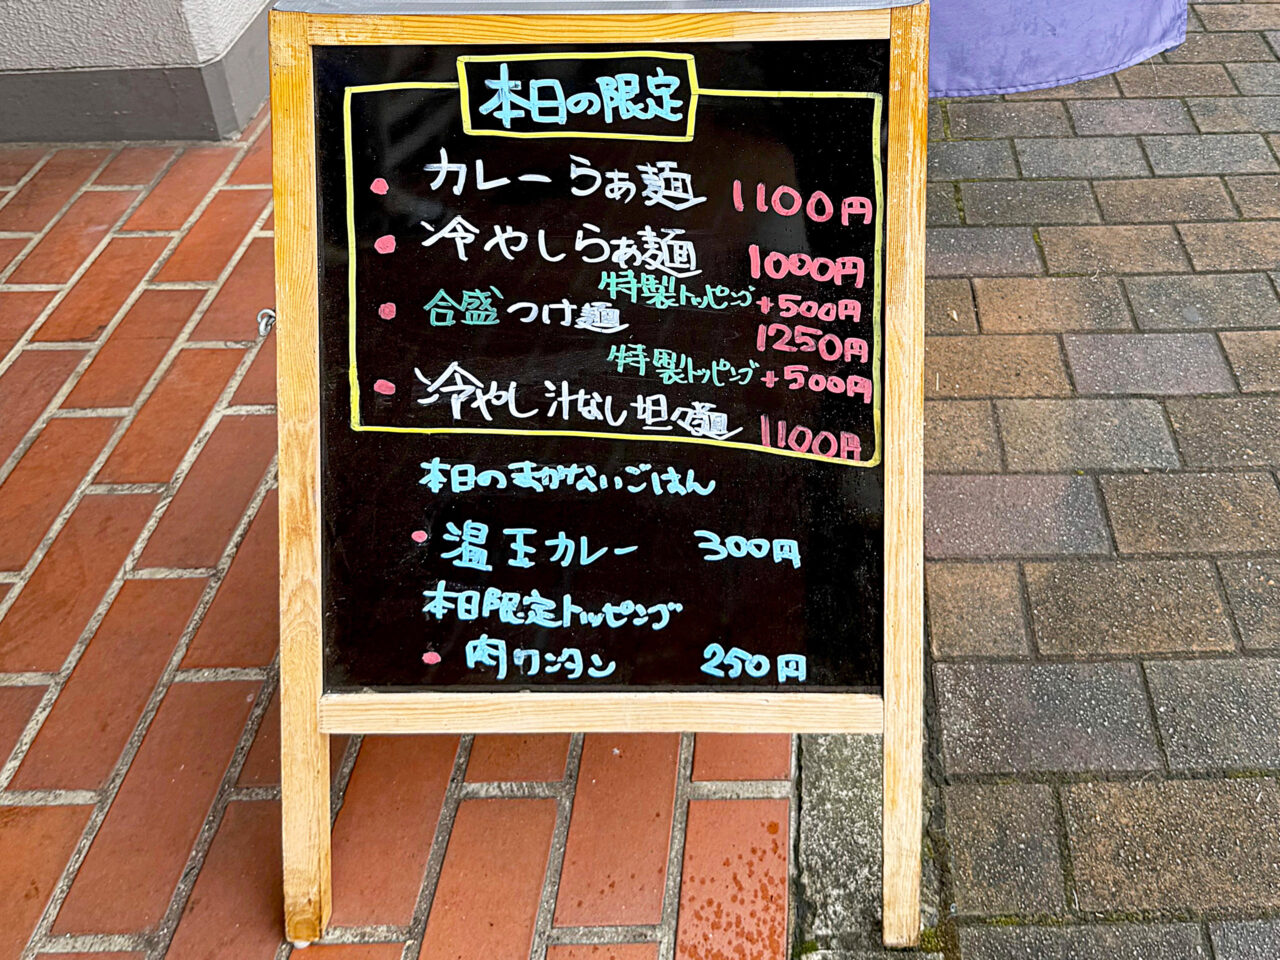 本日の限定
・カレーらぁ麺 1100円
・冷やしらぁ麺 1000円
特製トッピング +500円
・合盛つけ麺 1250円
特製トッピング +500円
・冷やし汁なし坦々麺 1100円
本日のまかないごはん
・温玉カレー 300円
本日限定トッピング
・肉ワンタン 250円